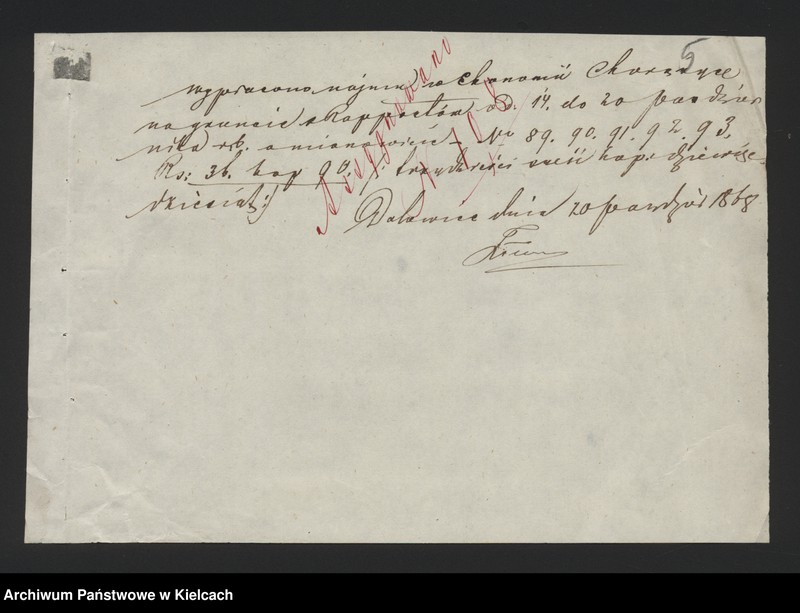 5
wypracono najmem w Ekonomii Chorążyce
na gruncie Rapportów od 14. do 20 paździer
nika rb. a mianowicie – No 89. 90. 91. 92. 93.
Rs: 36. kop 90. /: trzydzieści sześć kop: dziewięć-
dziesiąt :/
Asygnowano
N 108
dnia 20 paździer 1868
Archiwum Państwowe w Kielcach